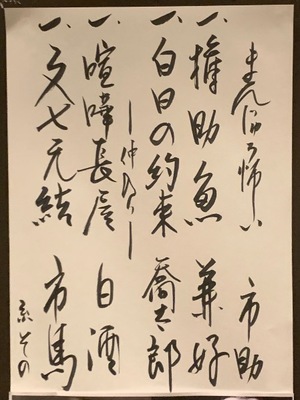 まんじゅう怖い 市助
一、権助魚 兼好
一、白日の約束 喬太郎
―仲入り―
一、喧嘩長屋 白酒
一、文七元結 市馬